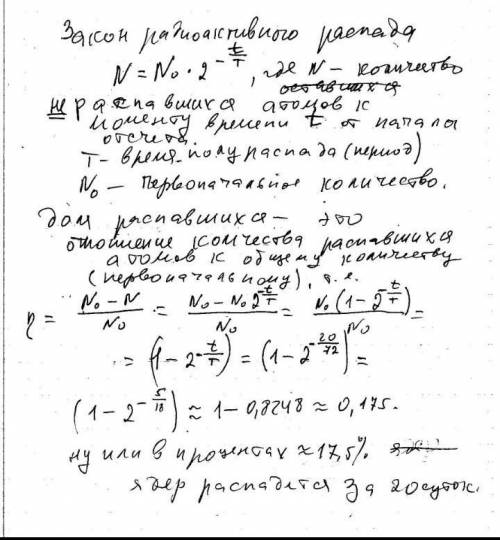 Закон радиоактивного распада
N = N₀ · 2^(-t/T), где N – количество
оставшихся
не распавшихся атомов к
моменту времени t от начала
отсчета.
T – время полураспада (период)
N₀ – Первоначальное количество.
Доля распавшихся – это
отношение количества распавшихся
атомов к общему количеству
(первоначальному), т.е.
η = (N₀ - N)/N₀ = (N₀ - N₀ 2^(-t/T))/N₀ = N₀(1 - 2^(-t/T))/N₀ =
= (1 - 2^(-t/T)) = (1 - 2^(-20/72)) =
(1 - 2^(-5/18)) ≈ 1 - 0,8248 ≈ 0,175.
ну или в процентах ≈ 17,5%
ядер распадется за 20 суток.